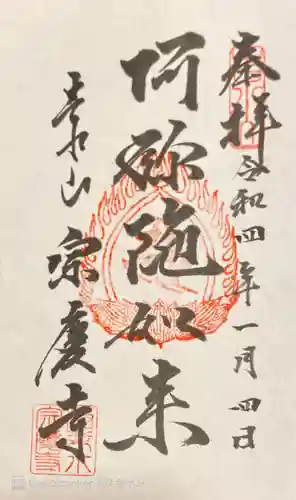 奉拝
令和四年一月四日
阿弥陀如来
宗慶寺